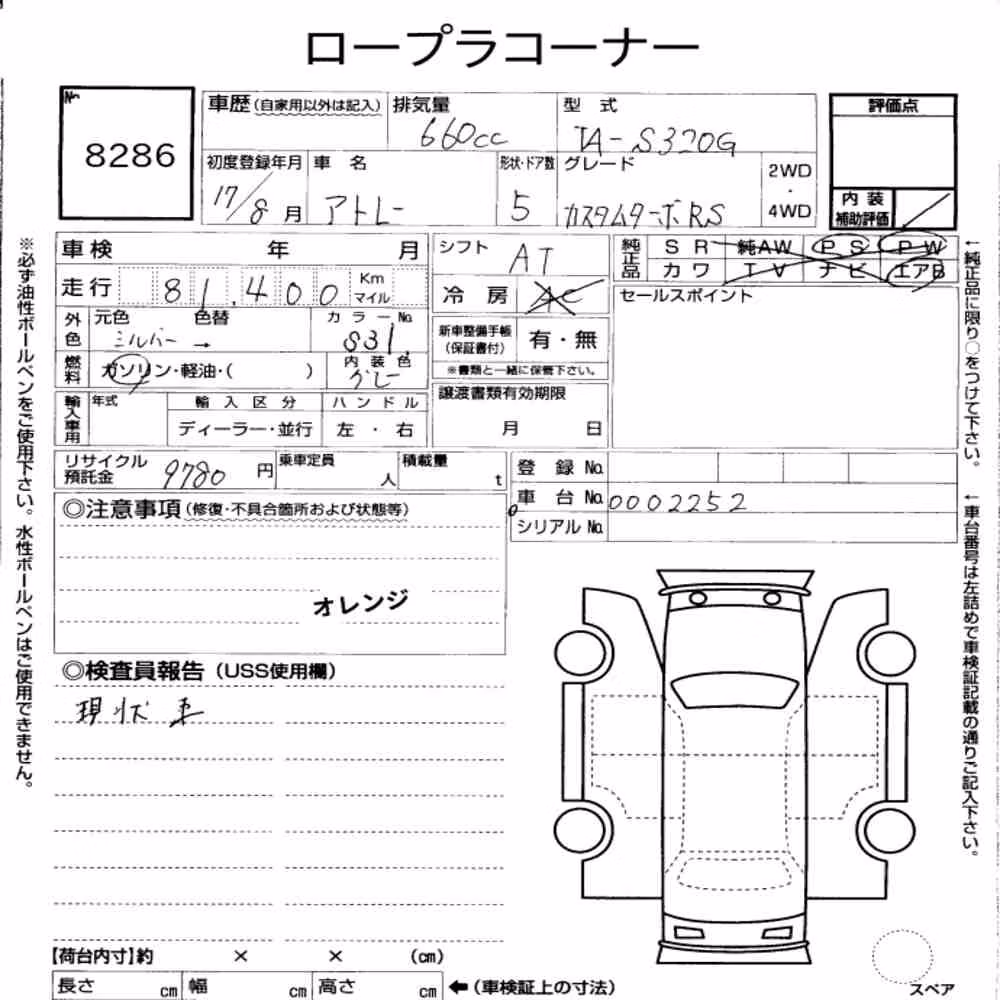 ロープラコーナー
No. 8286
車歴(自家用以外は記入) 排気量 660cc 型 式 TA-S320G
評価点
初度登録年月 17/8月 車 名 アトレー 形状・ドア数 5 グレード カスタムターボRS 2WD・4WD
内装補助評価
車検 年 月 シフト AT
純正品 SR 純AW PS PW
カワ TV ナビ エアB
走行 81,400 Km マイル 冷房 AC
セールスポイント
外色 元色 シルバー → 色替 カラーNo. S31
新車整備手帳(保証書付) 有・無
※書類と一緒に保管下さい。
燃料 ガソリン・軽油・( ) 内装色 グレー
譲渡書類有効期限 月 日
輸入車用 年式 輸入区分 ハンドル
ディーラー・並行 左・右
リサイクル預託金 9780 円 乗車定員 人 積載量 t
登録No.
車台No. 0002252
シリアルNo.
◎注意事項(修復・不具合箇所および状態等)
オレンジ
◎検査員報告(USS使用欄)
現状車
【荷台内寸】約 × × (cm)
長さ cm 幅 cm 高さ cm ←(車検証上の寸法)
スペア
※必ず油性ボールペンをご使用下さい。水性ボールペンはご使用できません。
←純正品に限り○をつけて下さい。
←車台番号は左詰めで車検証記載の通りご記入下さい。